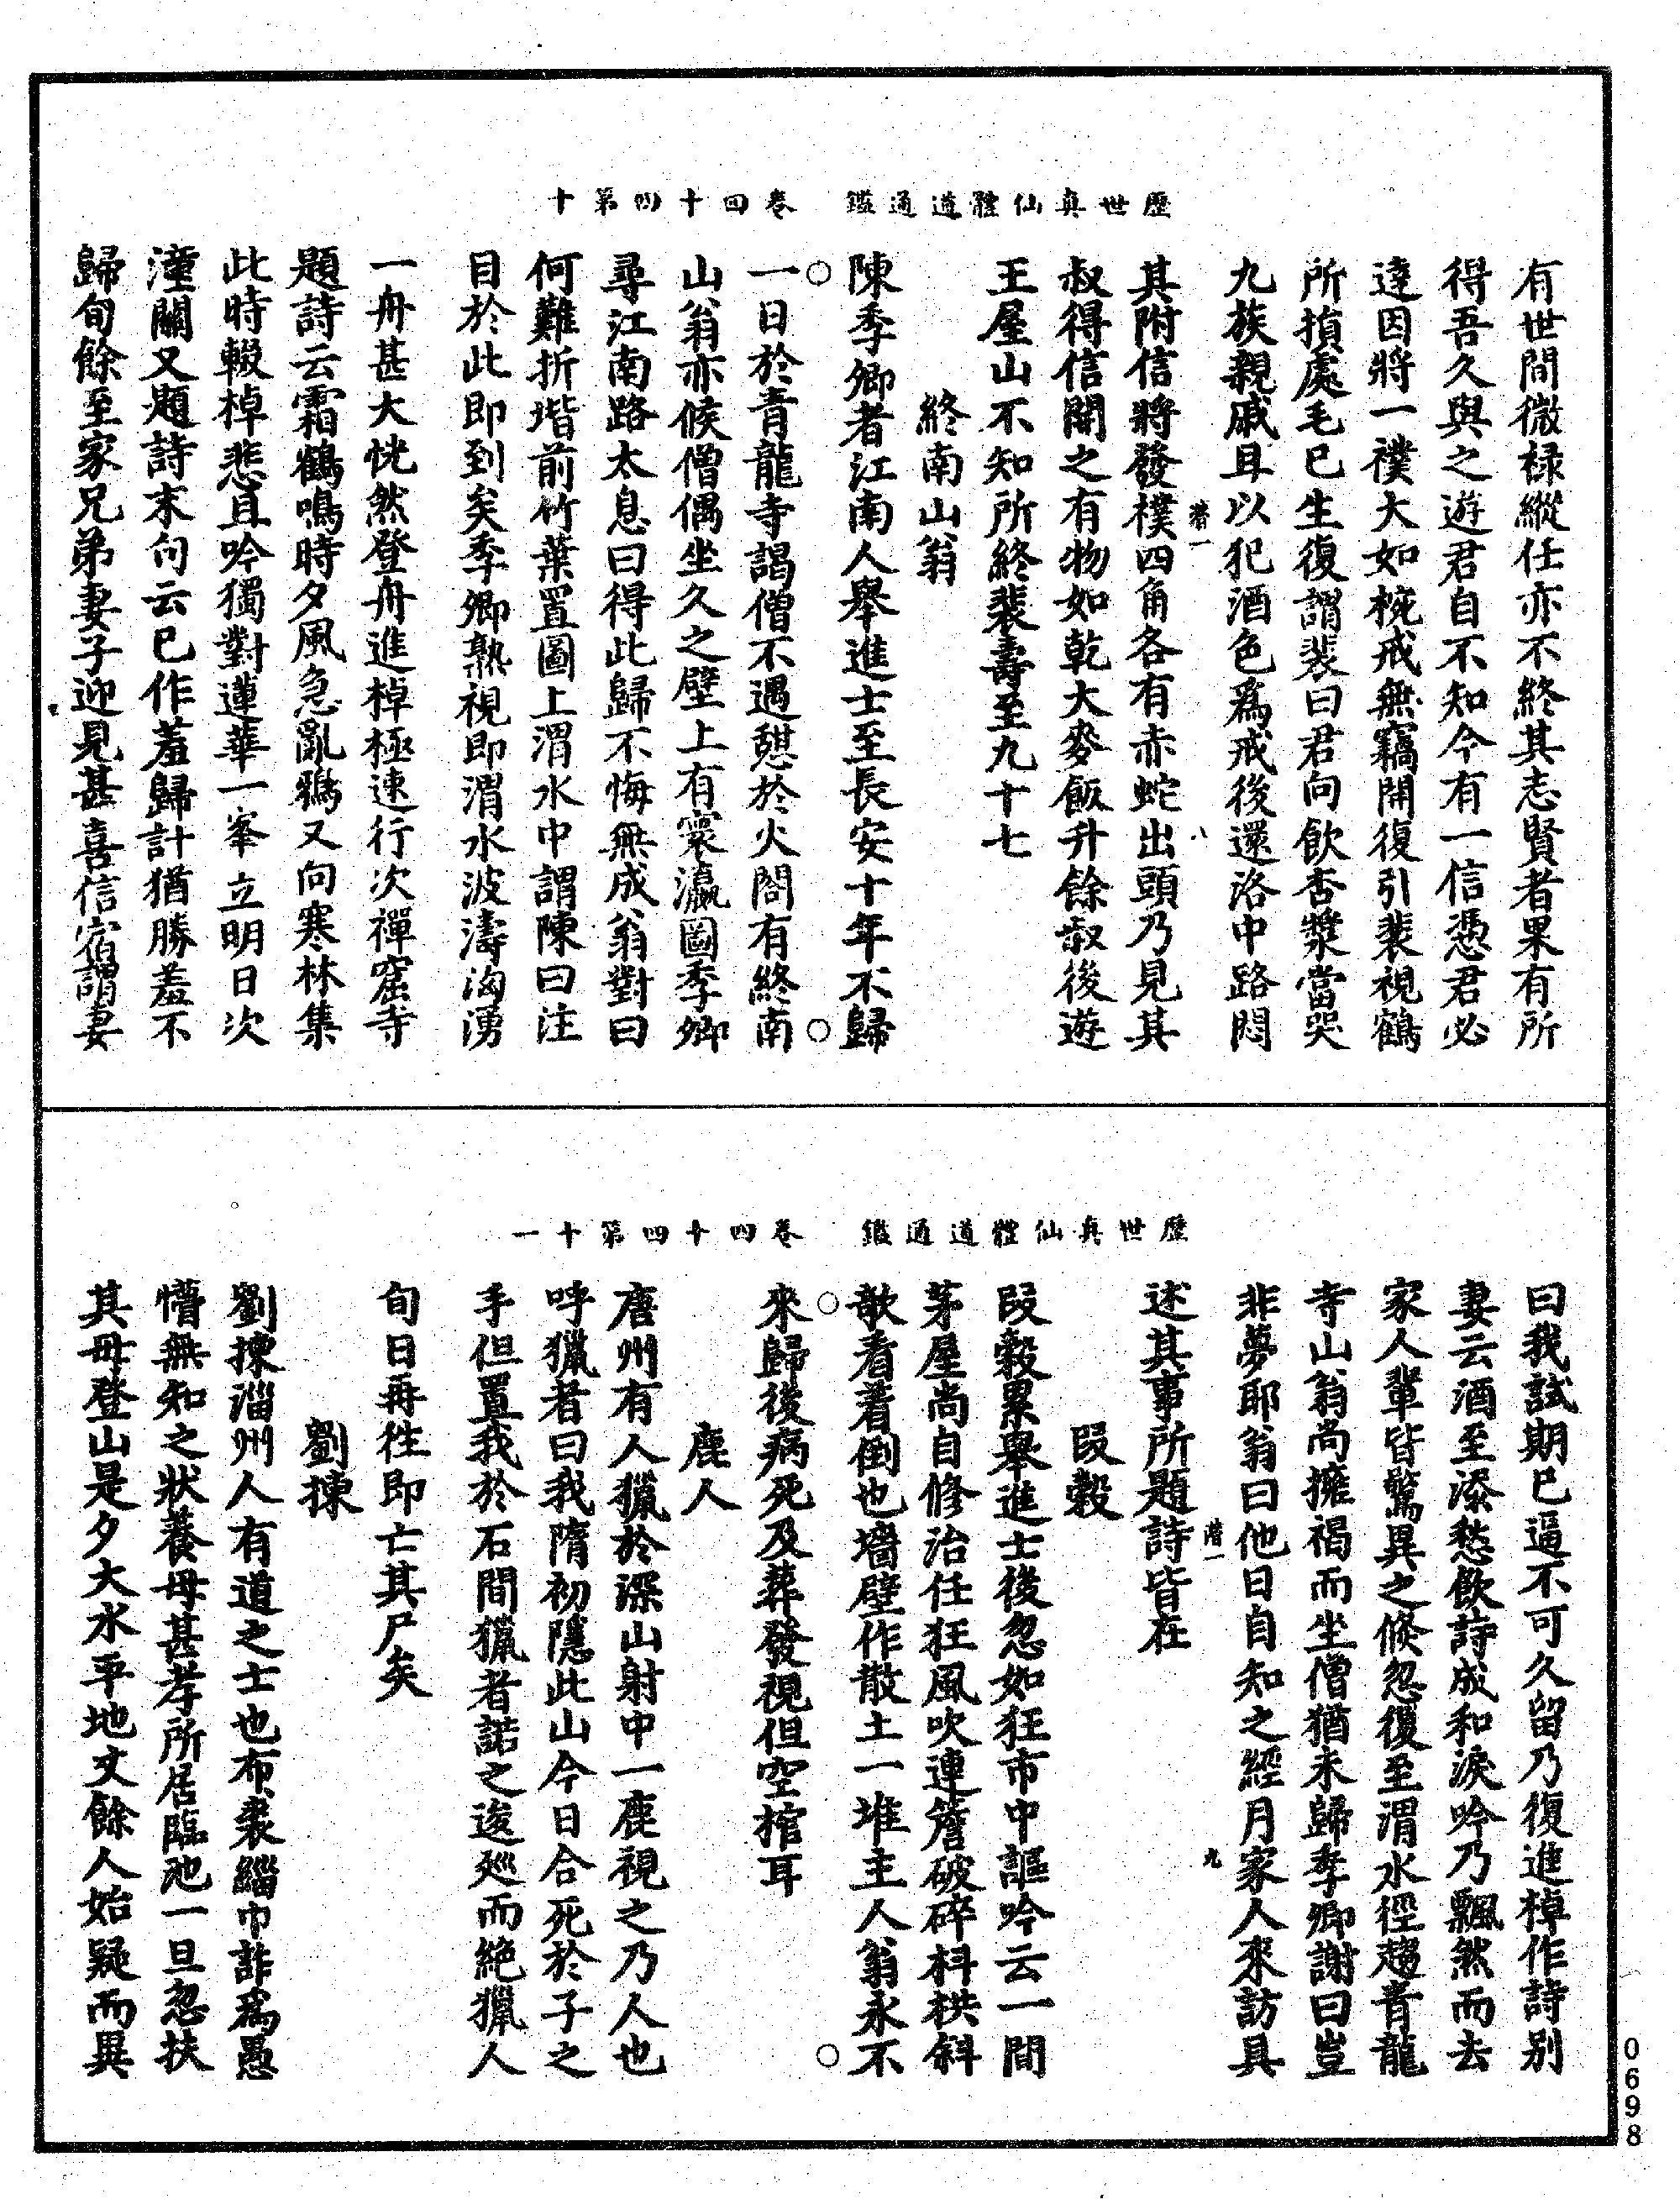 歷世真仙體道通鑑　卷四十四第十
有世間微祿縱任亦不終其志賢者果有所
得吾久與之遊君自不知今有一信憑君必
達因將一襆大如椀戒無竊開復引裴視鶴
所損處毛已生復謂裴曰君向飲杏漿當哭
九族親戚且以犯酒色爲戒後還洛中路悶
其附信將發襆四角各有赤蛇出頭乃見其
叔得信開之有物如乾大麥飯升餘叔後遊
王屋山不知所終裴壽至九十七
終南山翁
陳季卿者江南人舉進士至長安十年不歸
一日於青龍寺謁僧不遇憇於火閤有終南
山翁亦候僧偶坐久之壁上有寰瀛圖季卿
尋江南路太息曰得此歸不悔無成翁對曰
何難折堦前竹葉置圖上渭水中謂陳曰注
目於此即到矣季卿熟視即渭水波濤洶湧
一舟甚大恍然登舟進棹極速行次禪窟寺
題詩云霜鶴鳴時夕風急亂鴉又向寒林集
此時輟棹悲且吟獨對蓮華一峯立明日次
潼關又題詩末句云已作羞歸計猶勝羞不
歸旬餘至家兄弟妻子迎見甚喜信宿謂妻
歷世真仙體道通鑑　卷四十四第十一
曰我試期已逼不可久留乃復進棹作詩別
妻云酒至添愁飲詩成和淚吟乃飄然而去
家人輩皆驚異之倐忽復至渭水徑趨青龍
寺山翁尚擁褐而坐僧猶未歸季卿謝曰豈
非夢耶翁曰他日自知之經月家人來訪具
述其事所題詩皆在
叚縠
叚縠累舉進士後忽如狂市中謳吟云一間
茅屋尚自修治任狂風吹連簷破碎枓栱斜
欹看著倒也墻壁作散土一堆主人翁永不
來歸後病死及葬發視但空棺耳
鹿人
唐州有人獵於深山射中一鹿視之乃人也
呼獵者曰我隋初隱此山今日合死於子之
手但置我於石間獵者諾之逡廵而絶獵人
旬日再徃即亡其尸矣
劉揀
劉揀淄州人有道之士也布裘緇巾詐爲愚
懵無知之狀養母甚孝所居臨池一旦忽扶
其母登山是夕大水平地丈餘人始疑而異
0698